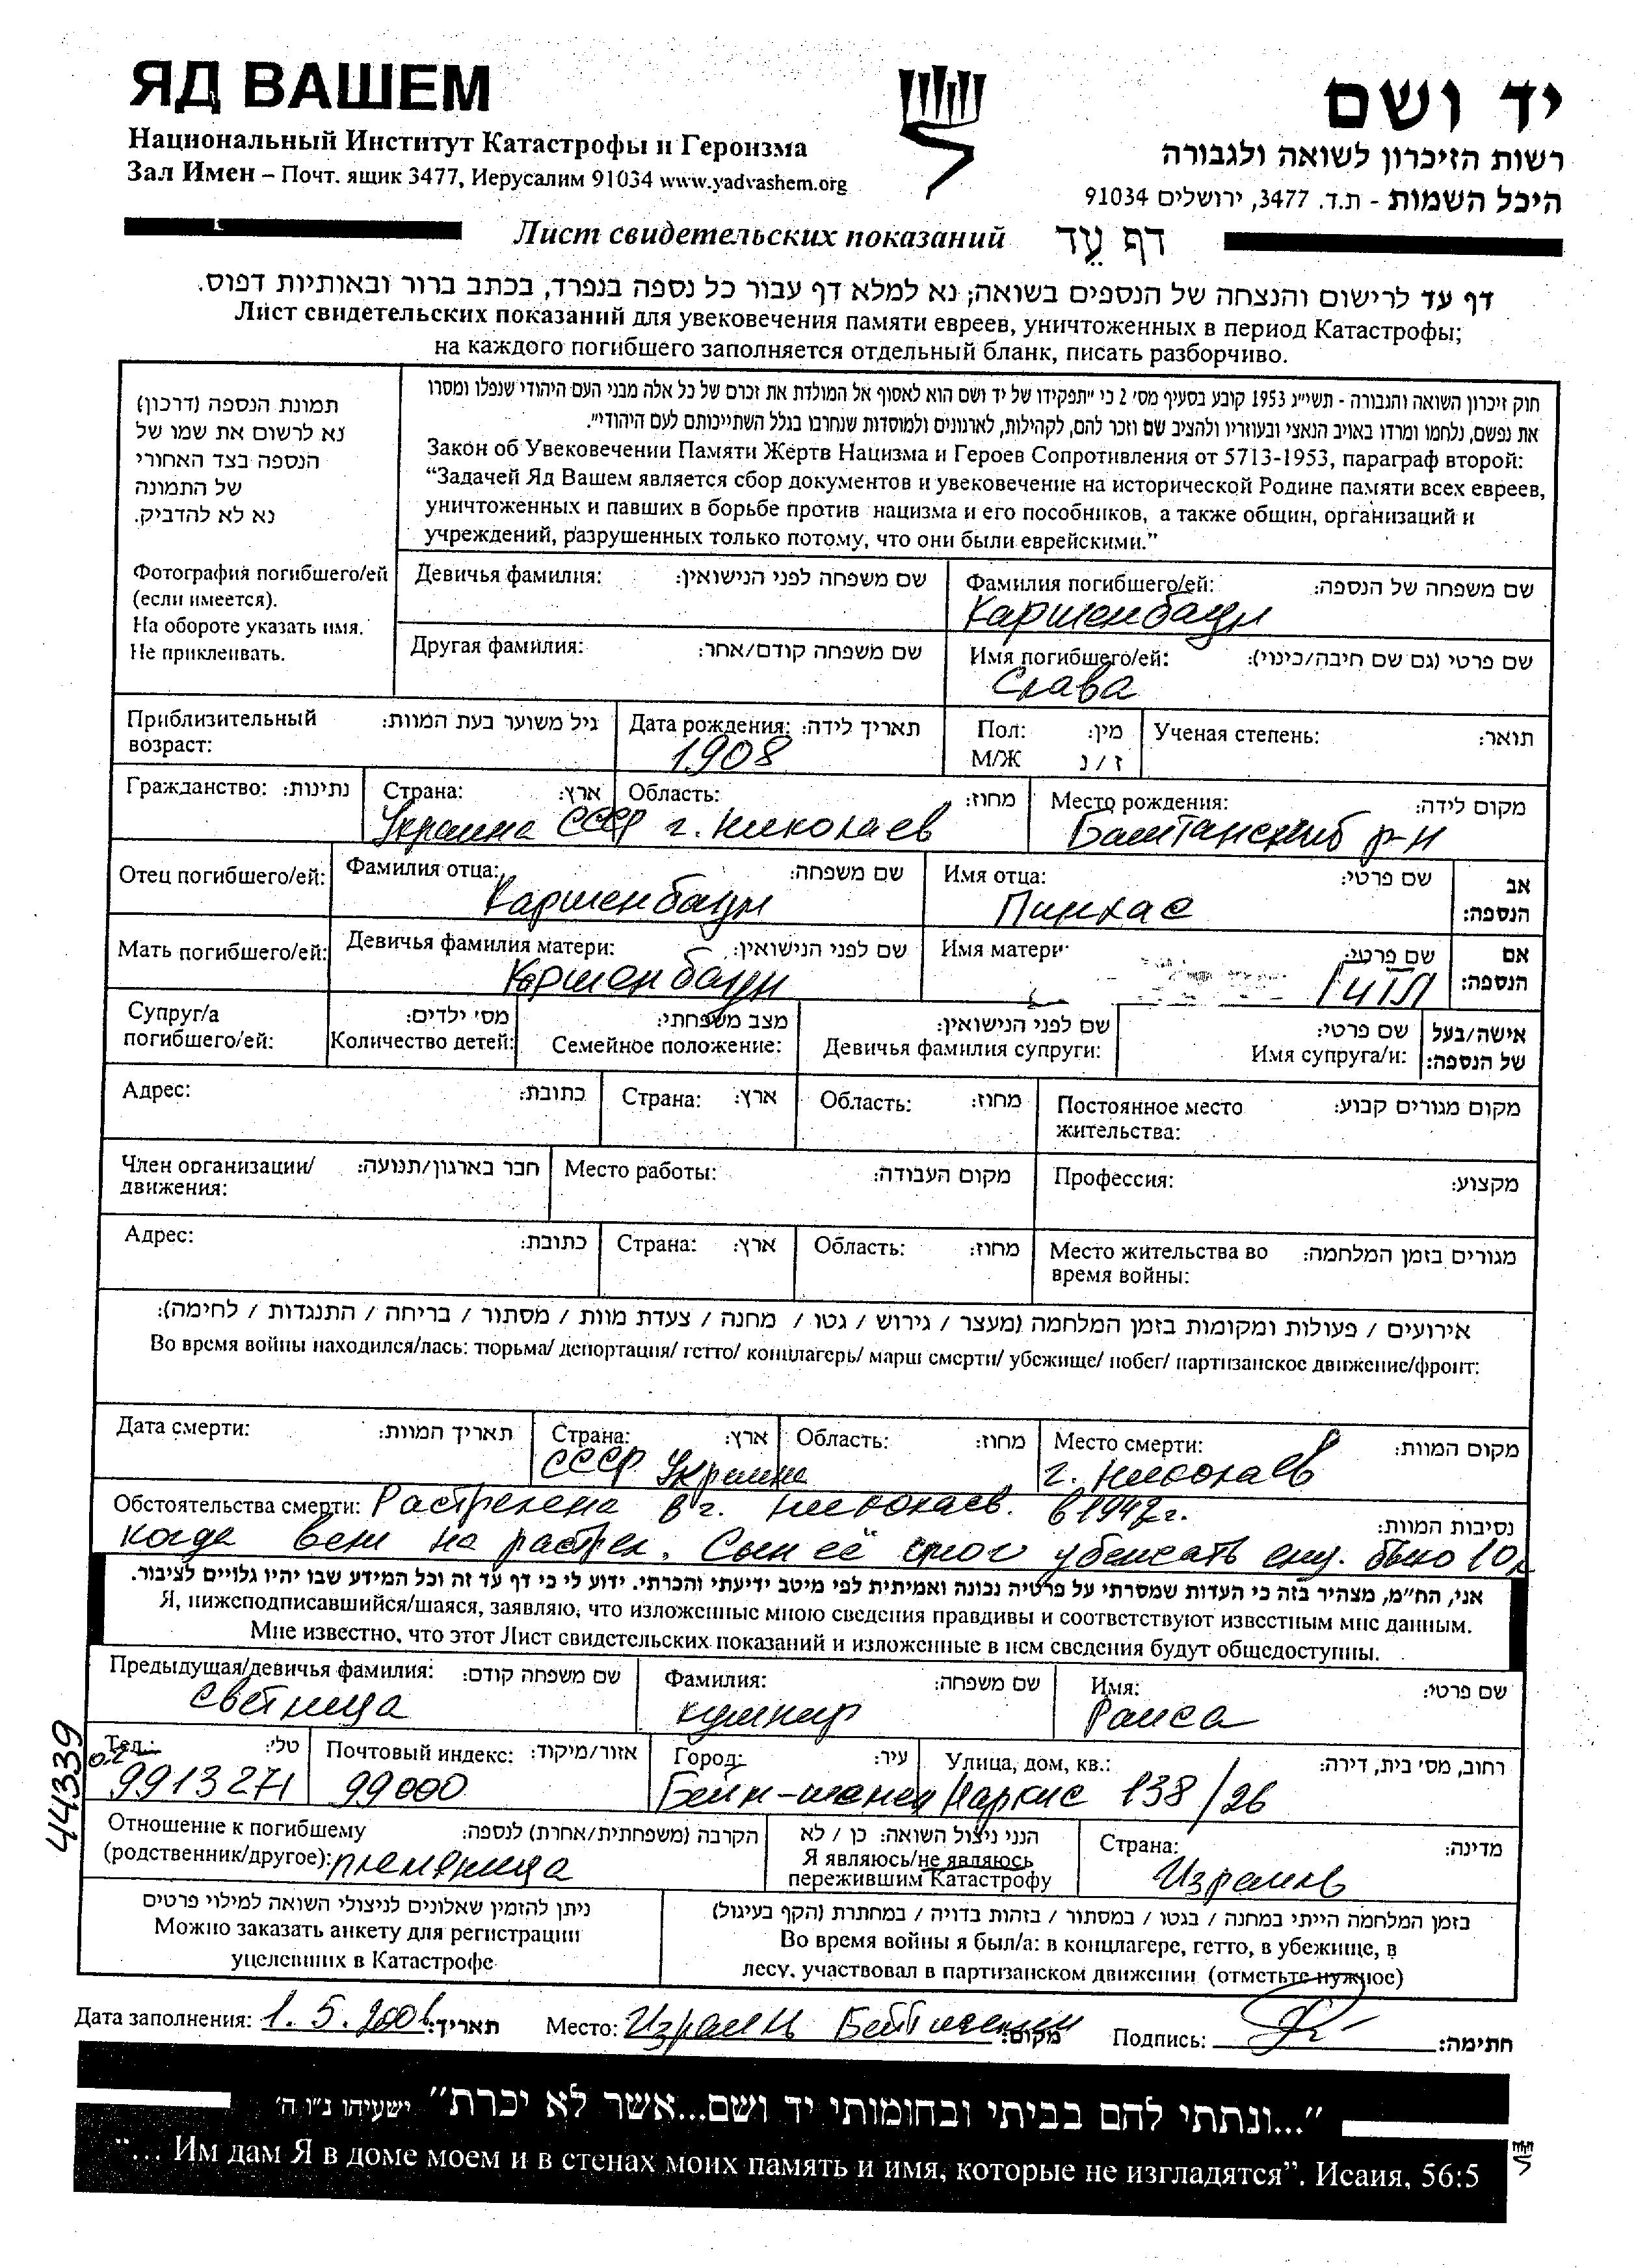 ЯД ВАШЕМ
Национальный Институт Катастрофы и Героизма
Зал Имен – Почт. ящик 3477, Иерусалим 91034 www.yadvashem.org
יד ושם
רשות הזיכרון לשואה ולגבורה
היכל השמות - ת.ד. 3477, ירושלים 91034
Лист свидетельских показаний דף עֵד
דף עד לרישום והנצחה של הנספים בשואה; נא למלא דף עבור כל נספה בנפרד, בכתב ברור ובאותיות דפוס.
Лист свидетельских показаний для увековечения памяти евреев, уничтоженных в период Катастрофы;
на каждого погибшего заполняется отдельный бланк, писать разборчиво.
תמונת הנספה (דרכון)
נא לרשום את שמו של
הנספה בצד האחורי
של התמונה
נא לא להדביק.
Фотография погибшего/ей
(если имеется).
На обороте указать имя.
Не приклеивать.
חוק זיכרון השואה והגבורה - תשי״ג 1953 קובע בסעיף מס׳ 2 כי ״תפקידו של יד ושם הוא לאסוף אל המולדת את זכרם של כל אלה מבני העם היהודי שנפלו ומסרו
את נפשם, נלחמו ומרדו באויב הנאצי ובעוזריו ולהציב שם וזכר להם, לקהילות, לארגונים ולמוסדות שנחרבו בגלל השתייכותם לעם היהודי״.
Закон об Увековечении Памяти Жертв Нацизма и Героев Сопротивления от 5713-1953, параграф второй:
“Задачей Яд Вашем является сбор документов и увековечение на исторической Родине памяти всех евреев,
уничтоженных и павших в борьбе против нацизма и его пособников, а также общин, организаций и
учреждений, разрушенных только потому, что они были еврейскими.”
Девичья фамилия: שם משפחה לפני הנישואין:
Фамилия погибшего/ей: שם משפחה של הנספה:
Каршенбаум
Другая фамилия: שם משפחה קודם/אחר:
Имя погибшего/ей: שם פרטי (גם שם חיבה/כינוי):
Слава
Приблизительный возраст: גיל משוער בעת המוות:
Дата рождения: תאריך לידה:
1908
Пол: מין:
М/Ж ז / נ
Ученая степень: תואר:
Гражданство: נתינות:
Страна: ארץ:
Область: מחוז:
Место рождения: מקום לידה:
Украина СССР г. Николаев Баштанский р-н
Отец погибшего/ей: Фамилия отца: שם משפחה: Имя отца: שם פרטי: אב הנספה:
Каршенбаум Пинхас
Мать погибшего/ей: Девичья фамилия матери: שם לפני הנישואין: Имя матери שם פרטי: אם הנספה:
Каршенбаум Гитл
Супруг/а погибшего/ей:
מס׳ ילדים: Количество детей:
מצב משפחתי: Семейное положение:
שם לפני הנישואין: Девичья фамилия супруги:
שם פרטי: Имя супруга/и:
אישה/בעל של הנספה:
Адрес: כתובת: Страна: ארץ: Область: מחוז: Постоянное место жительства: מקום מגורים קבוע:
Член организации/движения: חבר בארגון/תנועה: Место работы: מקום העבודה: Профессия: מקצוע:
Адрес: כתובת: Страна: ארץ: Область: מחוז: Место жительства во время войны: מגורים בזמן המלחמה:
אירועים / פעולות ומקומות בזמן המלחמה (מעצר / גירוש / גטו / מחנה / צעדת מוות / מסתור / בריחה / התנגדות / לחימה):
Во время войны находился/лась: тюрьма/ депортация/ гетто/ концлагерь/ марш смерти/ убежище/ побег/ партизанское движение/фронт:
Дата смерти: תאריך המוות: Страна: ארץ: Область: מחוז: Место смерти: מקום המוות:
СССР Украина г. Николаев
Обстоятельства смерти: Растрелена в г. Николаев. в 1942 г. נסיבות המוות:
когда вели на растрел. Сын её смог убежать ему. было 10 л
אני, הח״מ, מצהיר בזה כי העדות שמסרתי על פרטיה נכונה ואמיתית לפי מיטב ידיעתי והכרתי. ידוע לי כי דף עד זה וכל המידע שבו יהיו גלויים לציבור.
Я, нижеподписавшийся/шаяся, заявляю, что изложенные мною сведения правдивы и соответствуют известным мне данным.
Мне известно, что этот Лист свидетельских показаний и изложенные в нем сведения будут общедоступны.
Предыдущая/девичья фамилия: שם משפחה קודם: Фамилия: שם משפחה: Имя: שם פרטי:
Светлица Кушнир Раиса
Тел.: טלי: Почтовый индекс: אזור/מיקוד: Город: עיר: Улица, дом, кв.: רחוב, מס׳ בית, דירה:
02 9913271 99000 Бейт-шемеш Наркис 138/26
44339
Отношение к погибшему (родственник/другое): הקרבה (משפחתית/אחרת) לנספה:
племяница
הנני ניצול השואה: כן / לא
Я являюсь/не являюсь
пережившим Катастрофу
Страна: מדינה:
Израиль
ניתן להזמין שאלונים לניצולי השואה למילוי פרטים
Можно заказать анкету для регистрации
уцелевших в Катастрофе
בזמן המלחמה הייתי במחנה / בגטו / במסתור / בזהות בדויה / במחתרת (הקף בעיגול)
Во время войны я был/а: в концлагере, гетто, в убежище, в
лесу, участвовал в партизанском движении (отметьте нужное)
Дата заполнения: 1. 5. 2006 תאריך: Место: Израиль Бейт шемеш מקום: Подпись: חתימה:
״...ונתתי להם בביתי ובחומותי יד ושם...אשר לא יכרת״ ישעיהו נ״ו ה׳
“... Им дам Я в доме моем и в стенах моих память и имя, которые не изгладятся”. Исаия, 56:5